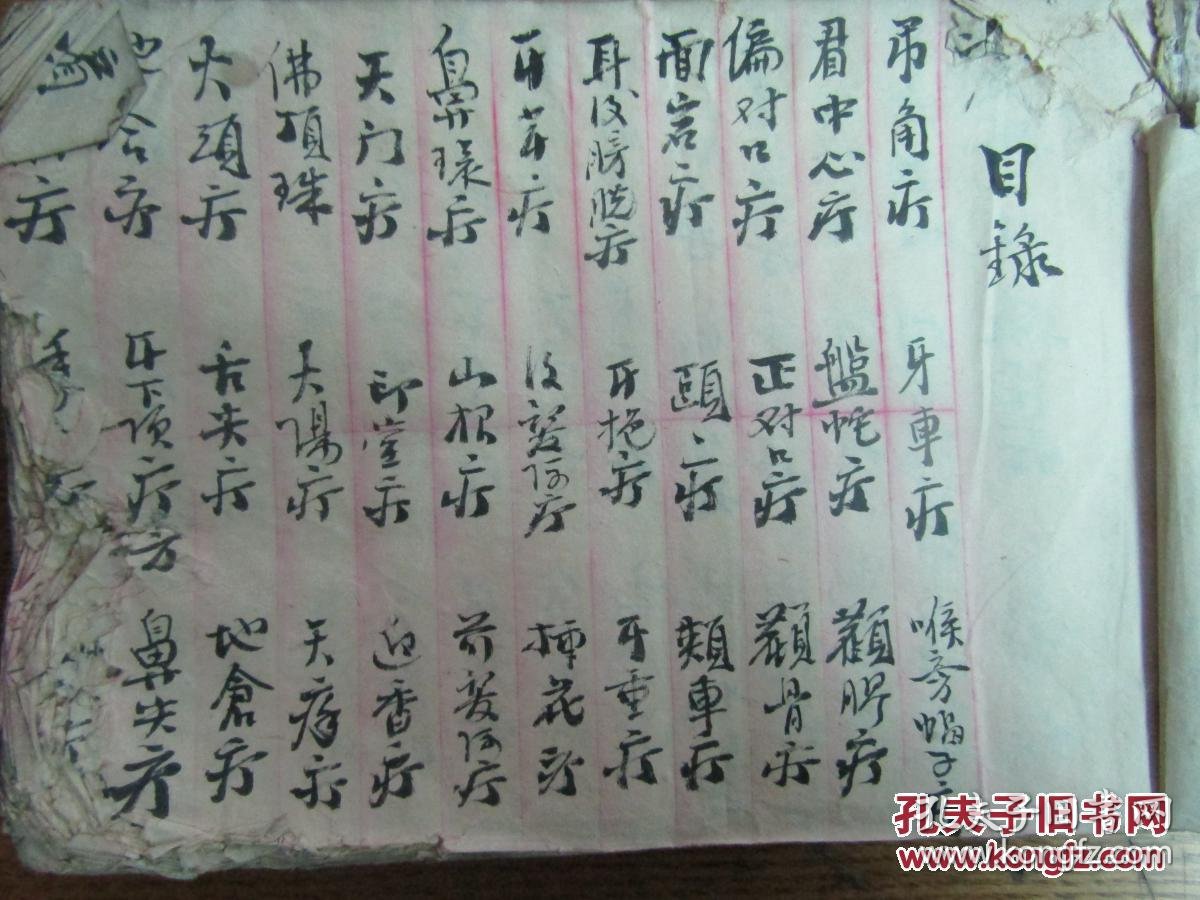 目錄
吊角疔 牙車疔 喉旁蝠子
君中心疔 盤蛇疔 顴髎疔
偏对口疔 正对口疔 顴骨疔
面岩疔 頤疔 頰車疔
耳後膀胱疔 牙疤疔 牙重疔
牙芽疔 後髮际疔 梅花疔
鼻環疔 山根疔 前髮际疔
天门疔 印堂疔 迎香疔
佛頂珠 太陽疔 天疔
大頭疔 舌尖疔 地倉疔
地合疔 牙下頂疔方 鼻尖疔
疔
孔夫子旧书网
www.kongfz.com